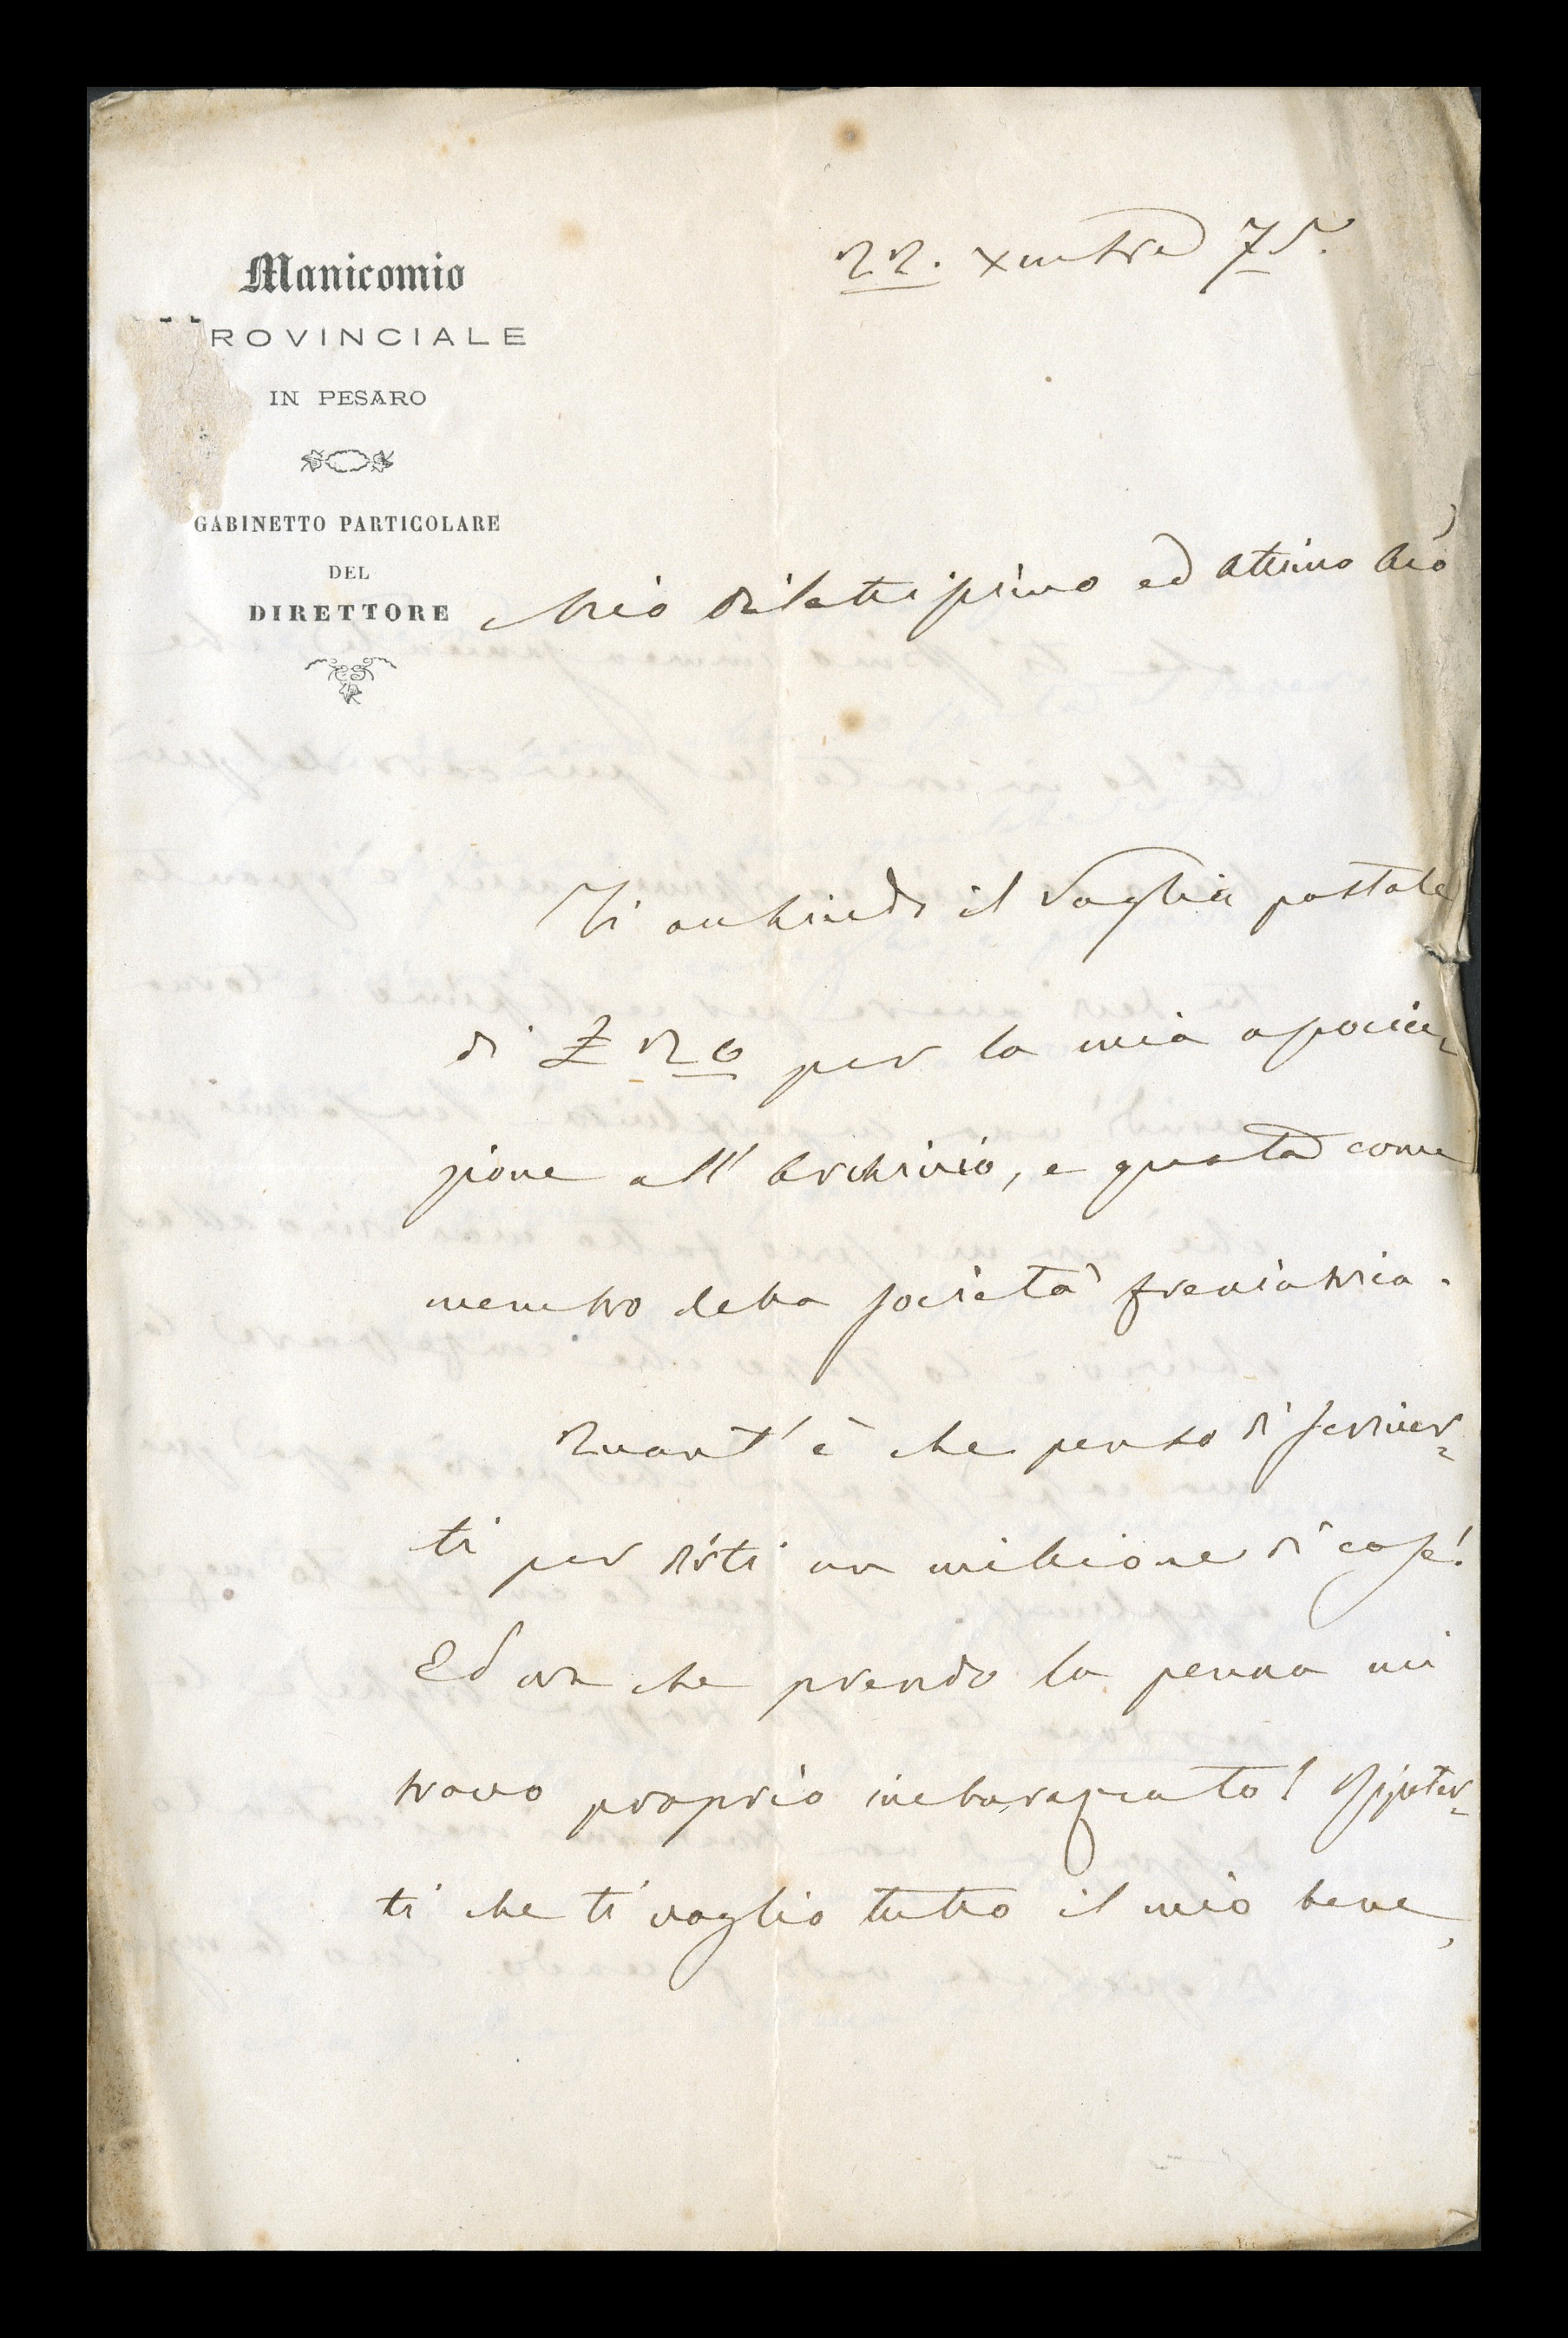 Manicomio
ROVINCIALE
IN PESARO
GABINETTO PARTICOLARE
DEL
DIRETTORE
22. Xmbre 75.
Mio dilettissimo ed ottimo
Ti acchiudo il vaglia postale
di £ 20 per la mia associa-
zione all' Archivio, e quota come
membro della società freniatrica.
Quant' è che penso di scriver-
ti per dirti un milione di cose!
Ed ora che prendo la penna mi
trovo proprio imbarazzato!
ti che ti voglio tutto il mio bene,